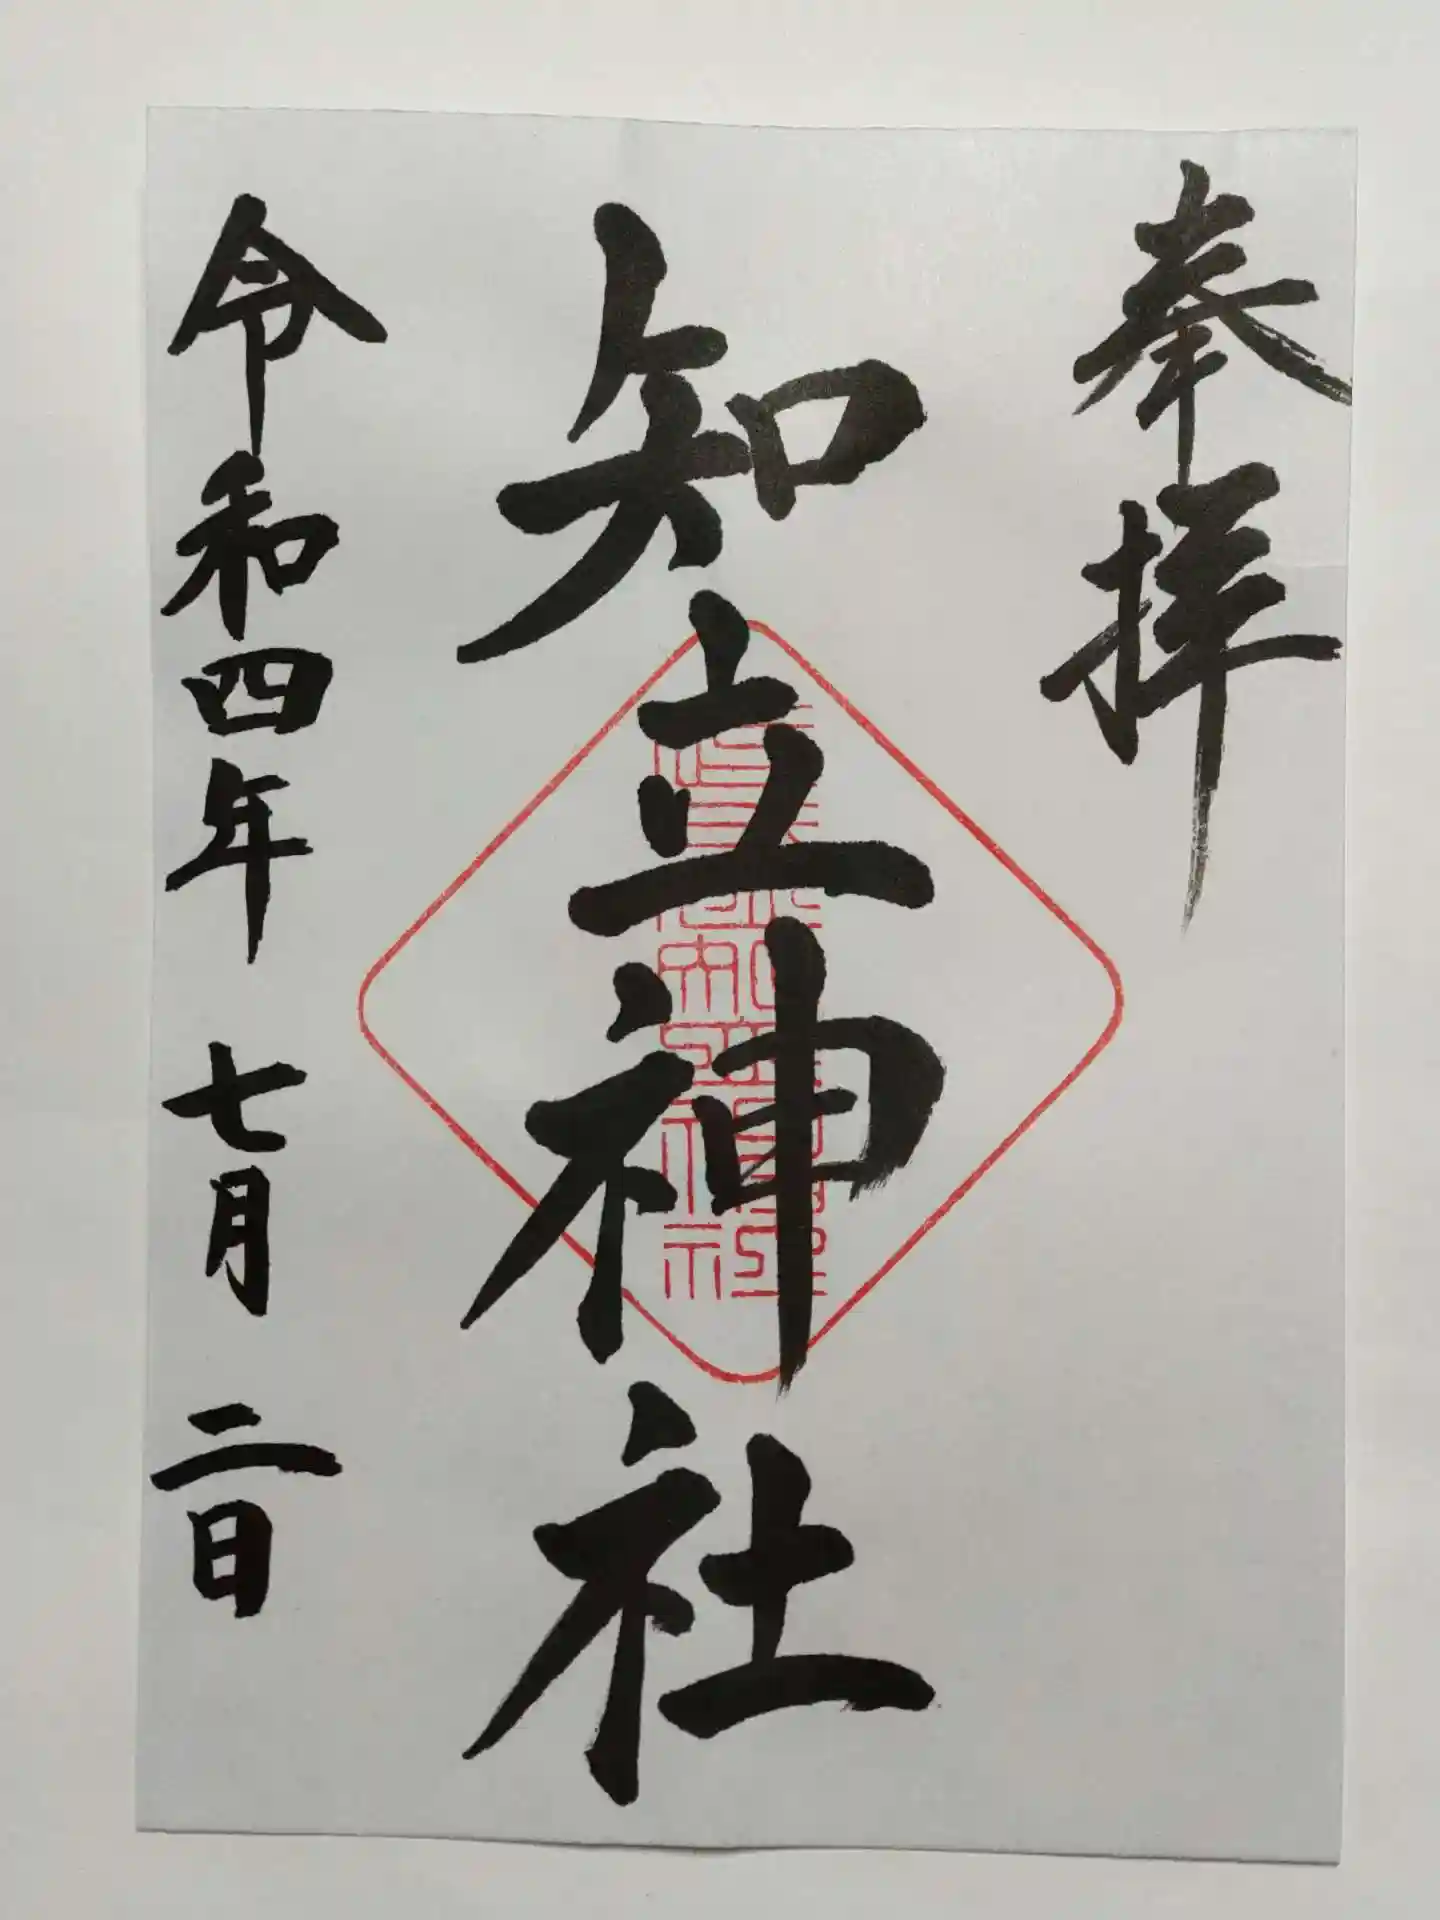 奉拝
知立神社
令和四年 七月 二日